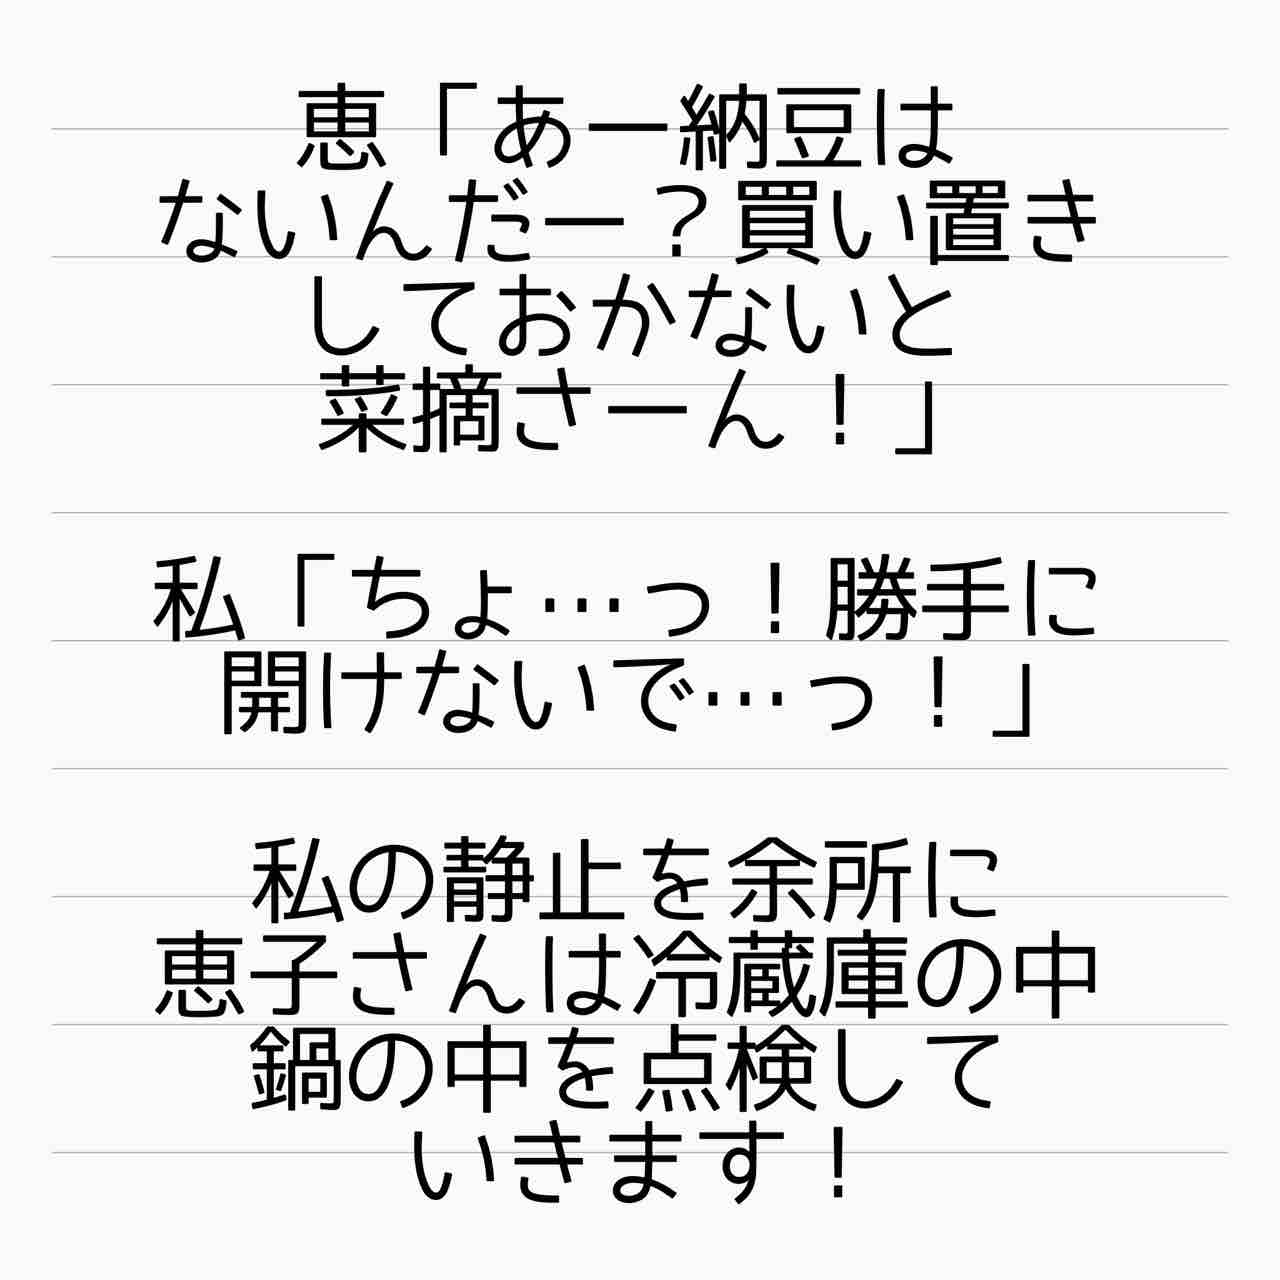 恵「あー納豆は
ないんだー？買い置き
しておかないと
菜摘さーん！」
私「ちょ…っ！勝手に
開けないで…っ！」
私の静止を余所に
恵子さんは冷蔵庫の中
鍋の中を点検して
いきます！